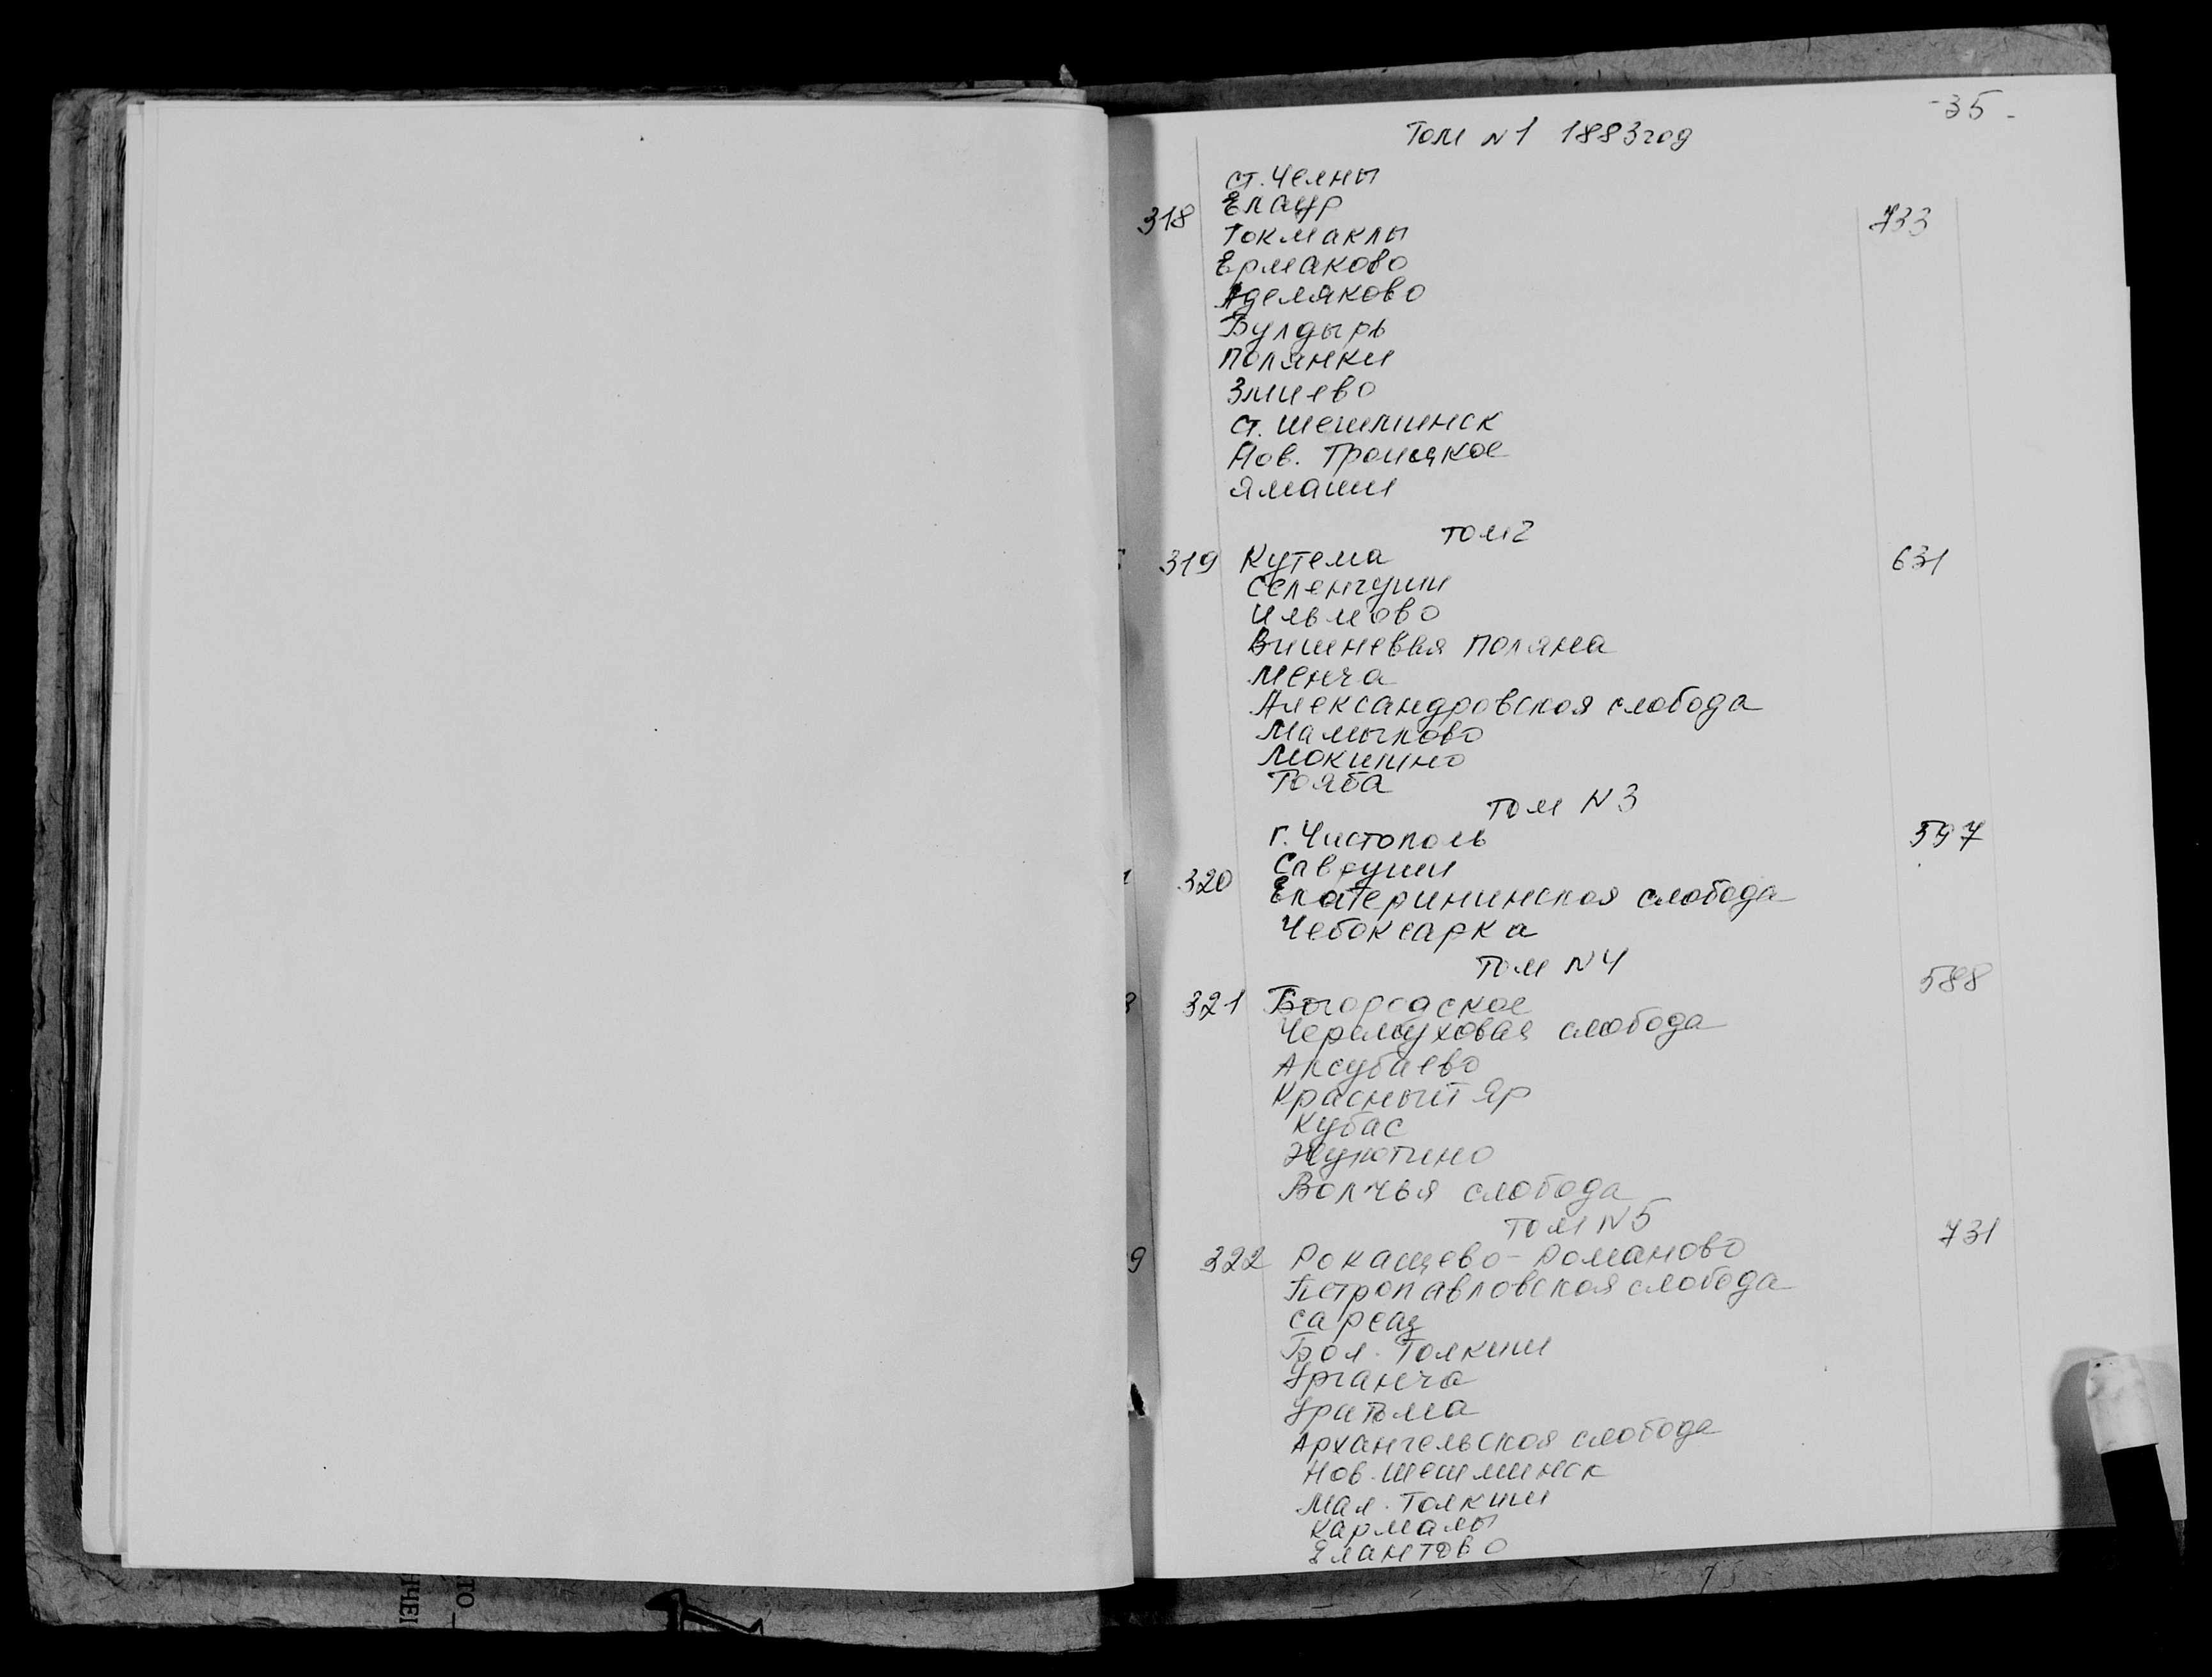 -35-
Том №1 1883год
ст. Челны
Елаур
318 Токмаклы 733
Ермаково
Аделяково
Булдырь
Полянки
Змиево
ст. Шешминск
Нов. Троицкое
Ямаши
том 2
319 Кутема 631
Селенгуши
Ильмово
Вишневая Поляна
Менча
Александровская слобода
Мамыково
Мокшино
Тояба
том №3
г. Чистополь 597
Савруши
320 Екатерининская слобода
Чебоксарка
Том №4
588
321 Богородское
Черемуховая слобода
Аксубаево
Красный Яр
Кубас
Жукотино
Волчья слобода
том №5
322 Рокашево-Романово 731
Петропавловская слобода
Сарсаз
Бол. Толкиш
Урганча
Уратьма
Архангельская слобода
Нов. Шешминск
Мал. Толкиш
Кармалы
Елантово